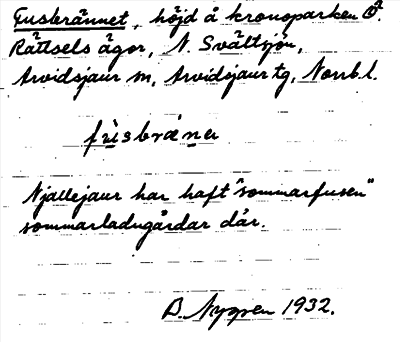 Fusbrännet, höjd å kronoparken Ö.
Rättsels ägor, N. Svältsjön,
Arvidsjaur sn, Arvidsjaur tg, Norrb. l.
fùsbrǽna
Njallejaur har haft "sommarfusen"
sommarladugårdar där.
B. Nygren 1932.